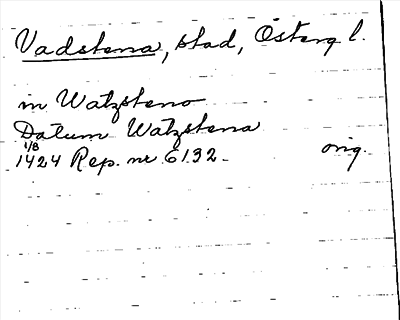 Vadstena, stad, Österg l.
in Watzsteno
Datum Watzstena
1/8
1424 Rep. nr 6132. orig.